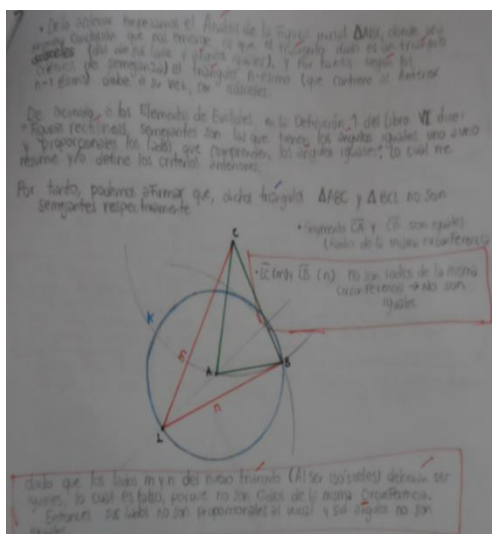 • De lo anterior empezamos el Análisis de la figura inicial ΔABC, donde una
primera conclusión que nos es que el triángulo dado es un triángulo
isósceles (dos de sus lados y ángulos iguales), y por tanto según los
criterios de semejanza) el triángulo n-ésimo (que contiene al anterior
n-1 ésimo) debe a su vez, ser isósceles.
De acuerdo a los Elementos de Euclides, en la Definición 1 del libro VI dice:
"Figuras rectilíneas semejantes son las que tienen los ángulos iguales uno a uno
y proporcionales los lados, que comprenden los ángulos iguales", lo cual me
resume y/o define los criterios anteriores.
Por tanto, podemos afirmar que, dichos triángulos ΔABC y ΔBCL no son
semejantes respectivamente
• Segmento CA y CB son iguales
(Radio de la misma circunferencia)
• LC (m) y LB (n) no son lados de la misma
circunferencia → No son
iguales
C
K
A
B
n
L
dado que los lados m y n del nuevo triángulo (Al ser isósceles) deberían ser
iguales, lo cual es falso, porque no son radios de la misma circunferencia.
Entonces sus lados no son proporcionales al inicial y sus ángulos no son
iguales